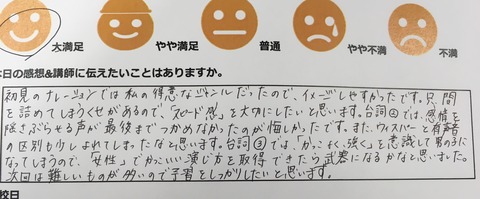 大満足 やや満足 普通 やや不満 不満
本日の感想&講師に伝えたいことはありますか。
初見のナレーションでは私の得意なジャンルだったので、イメージしやすかったです。只、間
を詰めてしまうくせがあるので、「スピード感」を大切にしたいと思います。台詞②では、感情を
揺さぶらせる声が最後までつかめなかったのが悔しかったです。また、ウィスパーと有声音
の区別も少しよれてしまったなと思います。台詞③では、「かっこよく、強く」を意識して男の子に
なってしまうので、「女性」でかっこいい演じ方を取得できたら武器になるかなと思いました。
次回は難しいものが多いので予習をしっかりしたいと思います。
校日